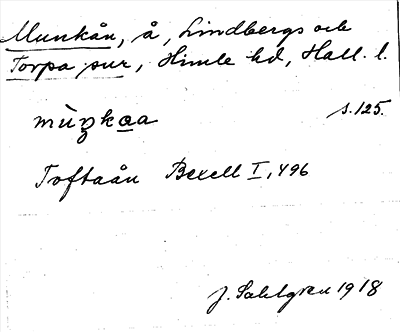 Munkån, å, Lindbergs och
Torpa snr, Himle hd, Hall. l.
mùŋkaa s. 125.
Toftaån Bexell I, 496
J. Sahlgren 1918